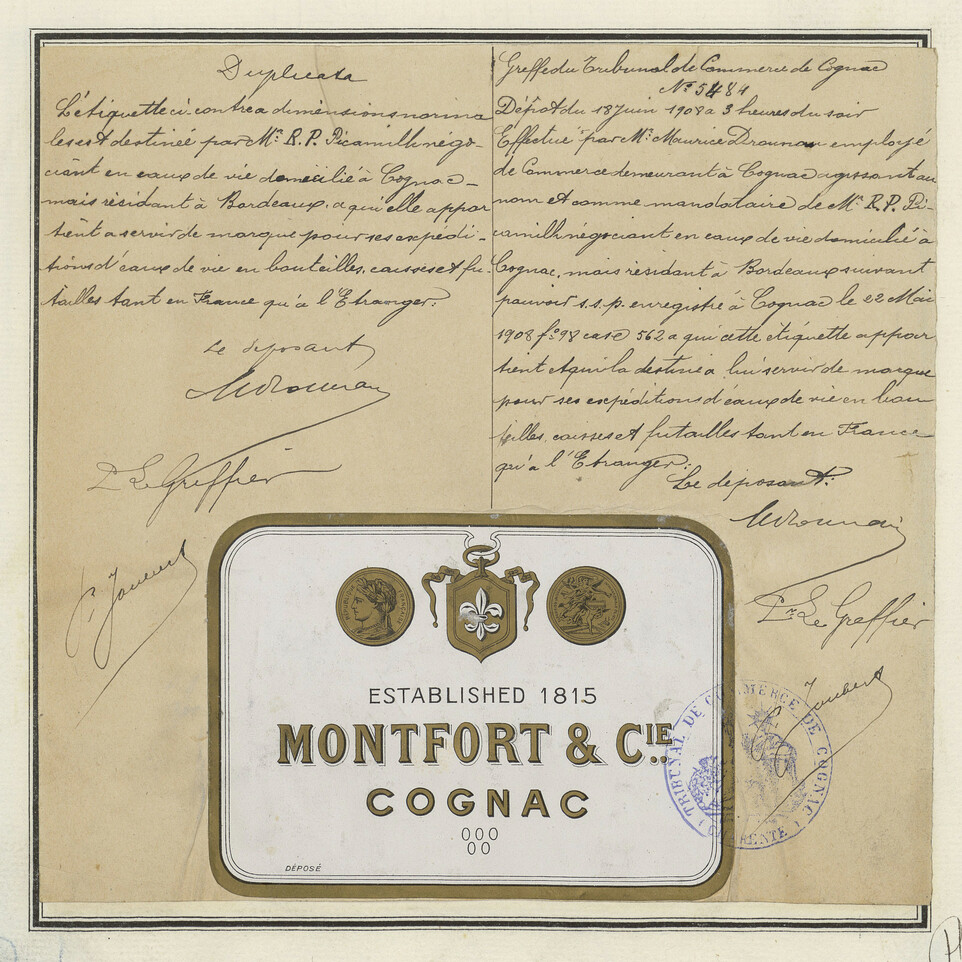 Duplicata
L'étiquette ci-contre a dimensions norma
les est destinée par Mr. R. P. Picamilh négo-
ciant en eaux de vie domicilié à Cognac -
mais résidant à Bordeaux, a qui elle appar
tient a servir de marque pour ses expédi-
tions d'eaux de vie en bouteilles, caisses et fu-
tailles tant en France qu'à l'Etranger.
Le déposant
Pr Le Greffier
Greffe du Tribunal de Commerce de Cognac
No 5484
Dépôt du 18 Juin 1908 a 3 heures du soir
Effectué par Mr. Maurice employé
de Commerce demeurant à Cognac agissant au
nom et comme mandataire de Mr. R. P. Pi-
camilh négociant en eaux de vie domicilié à
Cognac, mais résidant à Bordeaux suivant
pouvoir s.s.p. enregistré à Cognac le 22 Mai
1908 fo 98 case 562 a qui cette étiquette appar
tient et qui la destine a lui servir de marque
pour ses expéditions d'eaux de vie en bou
teilles, caisses et futailles tant en France
qu'à l'Etranger.
Le déposant.
Pr Le Greffier
Joubert
TRIBUNAL DE COMMERCE DE COGNAC
(CHARENTE)
REPUBLIQUE FRANÇAISE
ESTABLISHED 1815
MONTFORT & CIE.
COGNAC
OOO
OO
DÉPOSÉ